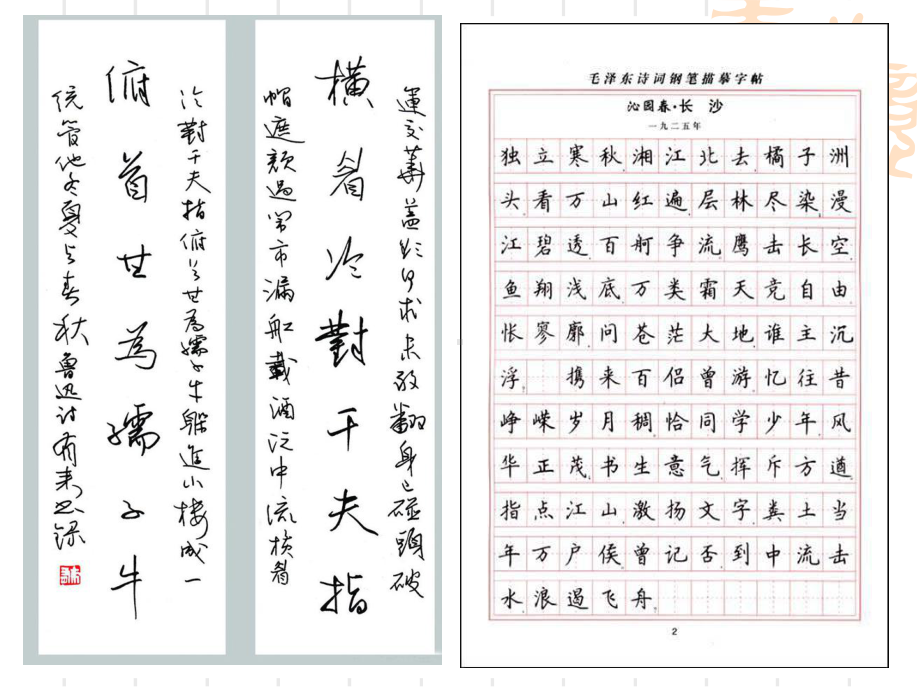 運交華蓋欲何求未敢翻身已碰頭破
横眉冷對千夫指
帽遮顏過鬧市漏舡載酒泛中流横眉
冷對千夫指俯首甘為孺子牛躲進小樓成一
俯首甘為孺子牛
統管他冬夏与春秋魯迅詩
毛泽东诗词钢笔描摹字帖
沁园春·长沙
一九二五年
独立寒秋,湘江北去,橘子洲
头。看万山红遍,层林尽染;漫
江碧透,百舸争流。鹰击长空,
鱼翔浅底,万类霜天竞自由。
怅寥廓,问苍茫大地,谁主沉
浮? 携来百侣曾游,忆往昔
峥嵘岁月稠。恰同学少年,风
华正茂;书生意气,挥斥方遒。
指点江山,激扬文字,粪土当
年万户侯。曾记否,到中流击
水,浪遏飞舟?
2